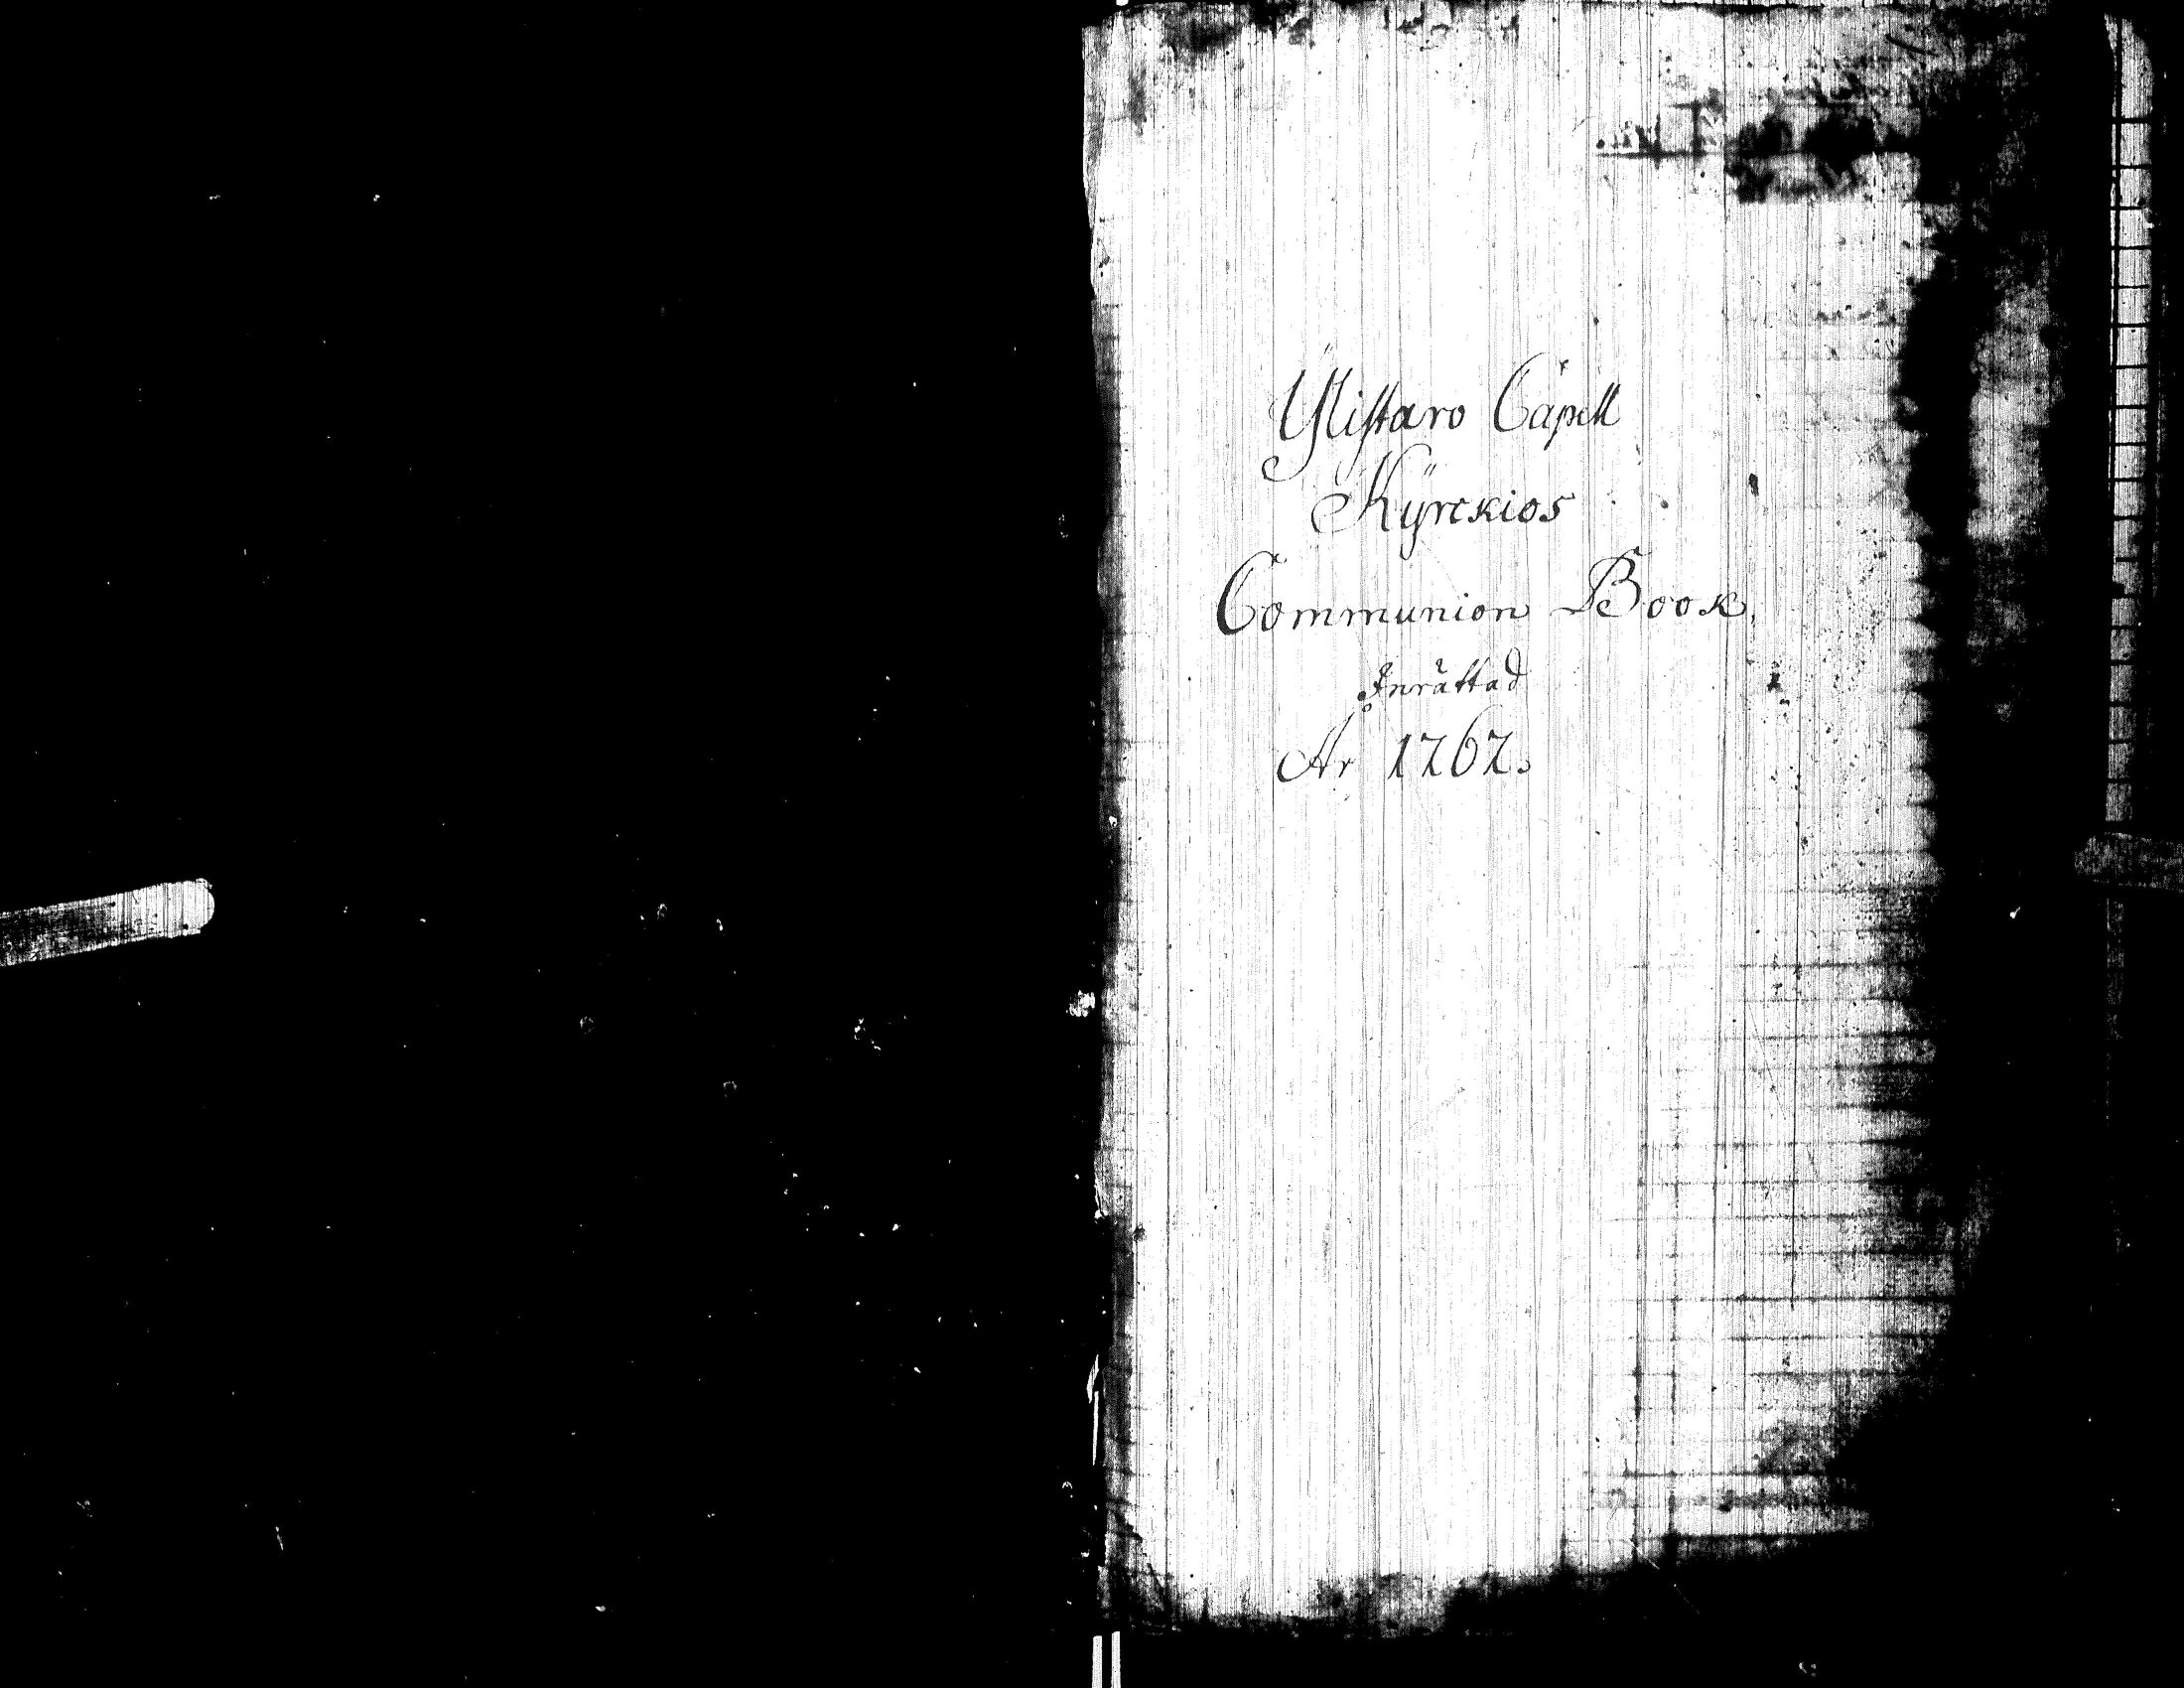 Ÿlistaro Capell
Kÿrckios
Communion Book,
Inrättad
År 1767.